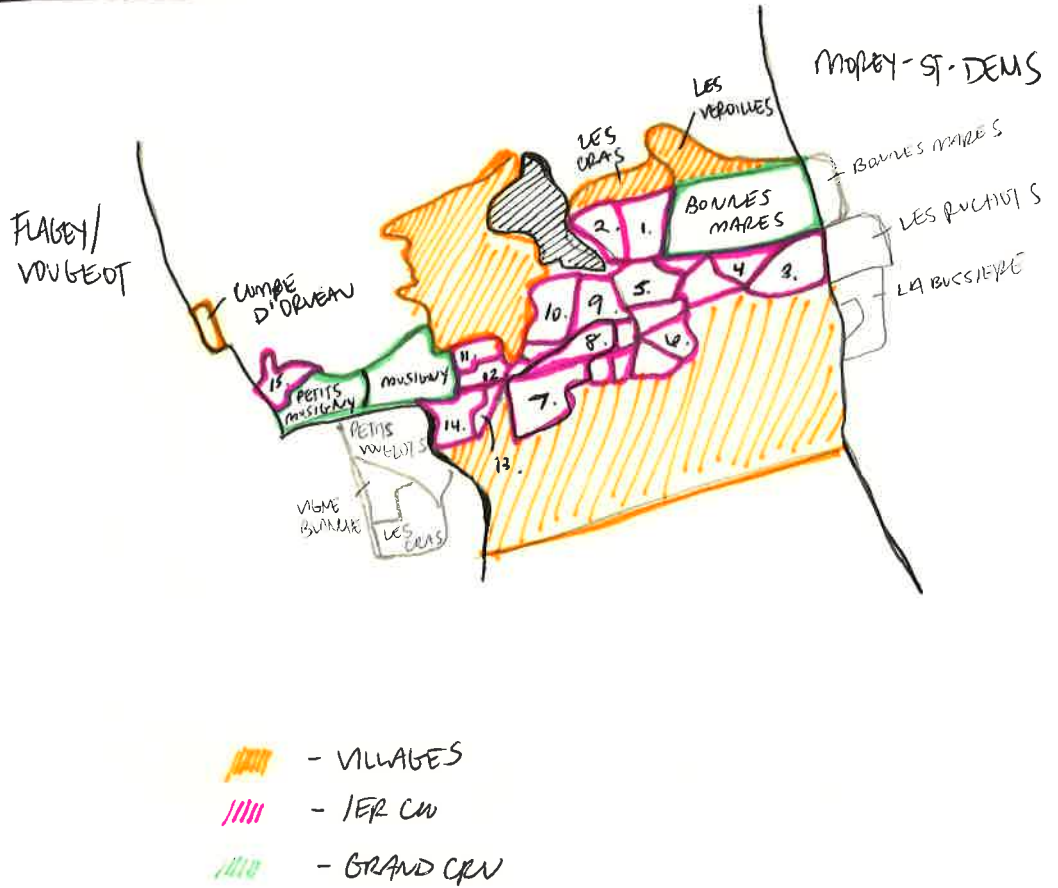 MOREY-ST-DENIS
LES
VEROILLES
LES
CRAS
BONNES MARES
BONNES
MARES
LES RUCHOTS
LA BUSSIERE
FLAGEY/
VOUGEOT
COMBE
D'ORVEAU
1.
2.
3.
4
5.
6.
7.
8.
9.
10.
11.
12
13.
14.
15.
PETITS
MUSIGNY
MUSIGNY
PETITS
VOUGEOTS
VIGNE
BLANCHE
LES
CRAS
- VILLAGES
- 1ER CRU
- GRAND CRU